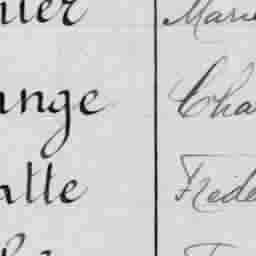 ier Marie
ange Cha
atte Frede